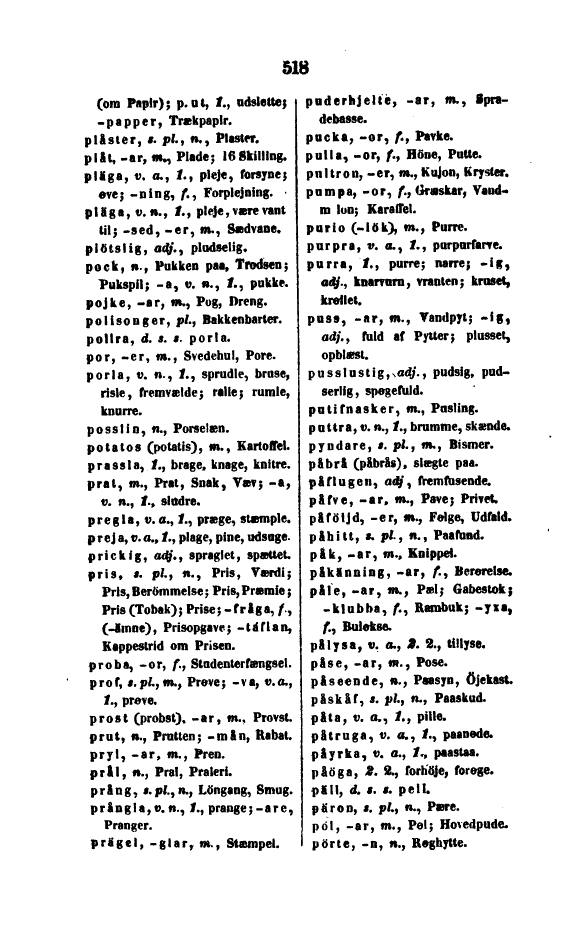 518
(om Papir); p. ut, 1., udslette;
-papper, Trækpapir.
plåster, s. pl., n., Plaster.
plåt, -ar, m., Plade; 16 Skilling.
pläga, v. a., 1., pleje, forsyne;
øve; -ning, f., Forplejning.
pläga, v. n., 1., pleje, være vant
til; -sed, -er, m., Sædvane.
plötslig, adj., pludselig.
pock, n., Pukken paa, Trodsen;
Pukspil; -a, v. n., 1., pukke.
pojke, -ar, m., Pog, Dreng.
polisonger, pl., Bakkenbarter.
pollra, d. s. s. porla.
por, -er, m., Svedehul, Pore.
porla, v. n., 1., sprudle, bruse,
risle, fremvælde; ralle; rumle,
knurre.
posslin, n., Porselæn.
potatos (potatis), m., Kartoffel.
prassla, 1., brage, knage, knitre.
prat, m., Prat, Snak, Væv; -a,
v. n., 1., sludre.
pregla, v. a., 1., præge, stæmple.
preja, v. a., 1., plage, pine, udsuge.
prickig, adj., spraglet, spættet.
pris, s. pl., n., Pris, Værdi;
Pris, Berömmelse; Pris, Præmie;
Pris (Tobak); Prise; -fråga, f.,
(-ämne), Prisopgave; -täflan,
Kappestrid om Prisen.
proba, -or, f., Studenterfængsel.
prof, s. pl., m., Prøve; -va, v. a.,
1., prøve.
prost (probst), -ar, m., Provst.
prut, n., Prutten; -mån, Rabat.
pryl, -ar, m., Pren.
prål, n., Pral, Praleri.
prång, s. pl., n., Löngang, Smug.
prångla, v. n., 1., prange; -are,
Pranger.
prägel, -glar, m., Stæmpel.
puderhjelte, -ar, m., Spra-
debasse.
pucka, -or, f., Pavke.
pulla, -or, f., Höne, Putte.
pultron, -er, m., Kujon, Kryster.
pumpa, -or, f., Græskar, Vand-
m lon; Karaffel.
purio (-lök), m., Purre.
purpra, v. a., 1., purpurfarve.
purra, 1., purre; narre; -ig,
adj., knarvurn, vranten; kruset,
krøllet.
puss, -ar, m., Vandpyt; -ig,
adj., fuld af Pytter; plusset,
opblæst.
pusslustig, adj., pudsig, pud-
serlig, spøgefuld.
putifnasker, m., Pusling.
puttra, v. n., 1., brumme, skænde.
pyndare, s. pl., m., Bismer.
påbrå (påbrås), slægte paa.
påflugen, adj, fremfusende.
påfve, -ar, m., Pave; Privet.
påföljd, -er, m., Følge, Udfald.
påhitt, s. pl., n., Paafund.
påk, -ar, m., Knippel.
påkänning, -ar, f., Berørelse.
påle, -ar, m., Pæl; Gabestok;
-klubba, f., Rambuk; -yxa,
f., Buløkse.
pålysa, v. a., 2. 2., tillyse.
påse, -ar, m., Pose.
påseende, n., Paasyn, Öjekast.
påskåf, s. pl., n., Paaskud.
påta, v. a., 1., pille.
påtruga, v. a., 1., paanøde.
påyrka, v. a., 1., paastaa.
påöga, 2. 2., forhöje, forøge.
päll, d. s. s. pell.
päron, s. pl., n., Pære.
pöl, -ar, m., Pøl; Hovedpude.
pörte, -n, n., Røghytte.